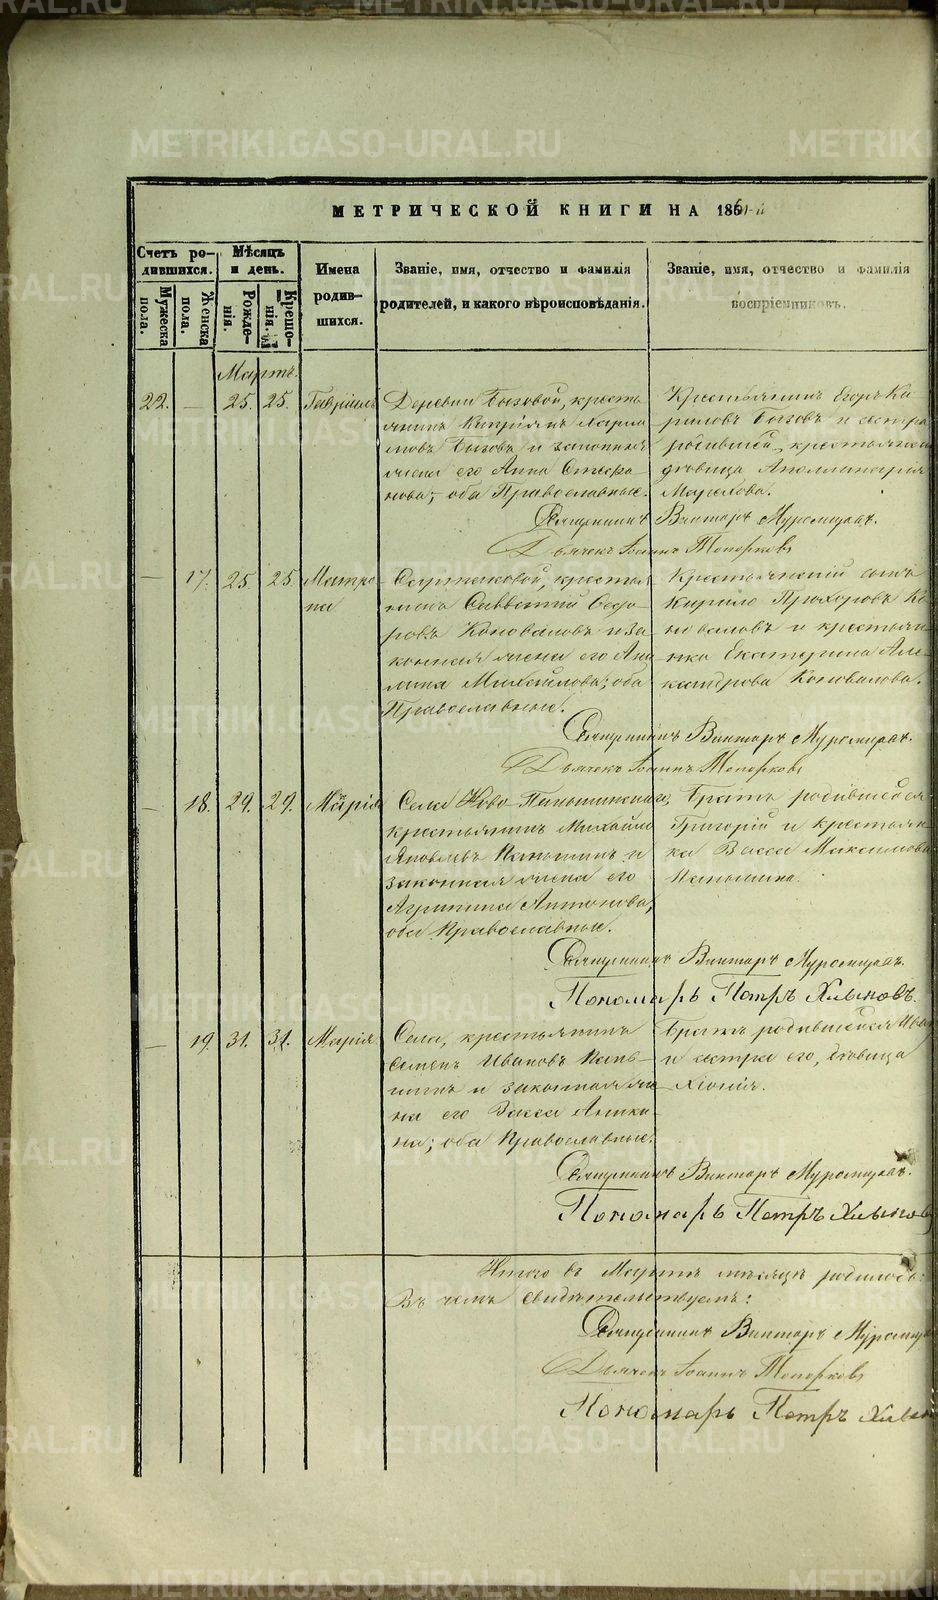 МЕТРИЧЕСКОЙ КНИГИ НА 1861-й
Счетъ ро-
дившихся.
Мужеска
пола.
Женска
пола.
Мѣсяцъ
и день.
Рожде-
нія.
Крещо-
нія.
Имена
родив-
шихся.
Званіе, имя, отчество и фамилія
родителей, и какого вѣроисповѣданія.
Званіе, имя, отчество и фамилія
воспріемниковъ.
Мартъ.
22. — 25. 25. Гавріилъ
Деревни Бызовой, кресть
янинъ Кипріянъ
Бызовъ и законная
жена его Анна Стефа
нова; оба Православные.
Крестьянинъ Егоръ Ки
риловъ Бызовъ и сестра
родившей, крестьянская
дѣвица Аполлинарія
Маркова.
Священникъ Викторъ Муромцевъ.
Дьячекъ Іоаннъ Топорковъ
— 17. 25 25 Матро
на
крестья
нинъ Савватій Ѳедо
ровъ Коноваловъ и за
конная жена его
Михайлова; оба
Православные.
Крестьянскій сынъ
Кирило Прохоровъ Ко
новаловъ и крестьян
ка Екатерина Але
ксандрова Коновалова.
Священникъ Викторъ Муромцевъ.
Дьячекъ Іоаннъ Топорковъ
— 18. 29. 29. Марія
Села Ново-Паньшинскаго,
крестьянинъ Михайло
Яковлевъ Паньшинъ и
законная жена его
Агрипина Антонова,
оба Православные.
Братъ родившейся
Григорій и крестьян
ка Васса Максимова
Паньшина.
Священникъ Викторъ Муромцевъ.
Пономарь Петръ Хлыновъ.
— 19. 31. 31. Марія
Села, крестьянинъ
Семенъ Ивановъ Пань-
шинъ и законная же
на его Васса Аники
на; оба Православные.
Братъ родившейся Иван
и сестра его, дѣвица
Хіонія.
Священникъ Викторъ Муромцевъ.
Пономарь Петръ Хлыновъ
Итого въ Мартѣ мѣсяцѣ родилось:
Въ чемъ свидѣтельствуемъ:
Священникъ Викторъ Муромцев
Дьячекъ Іоаннъ Топорковъ
Пономарь Петръ Хлын
METRIKI.GASO-URAL.RU